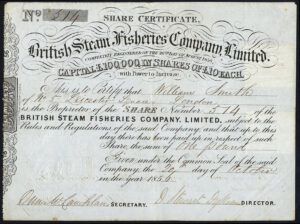 No 514
SHARE CERTIFICATE.
British Steam Fisheries Company, Limited.
COMPLETELY REGISTERED
CAPITAL £100,000, IN SHARES OF £10 EACH.
with Power to Increase
This is to Certify that William Smith
of
is the Proprietor of the SHARE Number 514 of the
BRITISH STEAM FISHERIES COMPANY, LIMITED, subject to the
Rules and Regulations of the said Company and that up to this
day there has been paid up in respect of such
Share, the sum of One Pound
Given under the Common Seal of the said
Company, the 29 day of October
in the year 1856
SECRETARY. DIRECTOR.